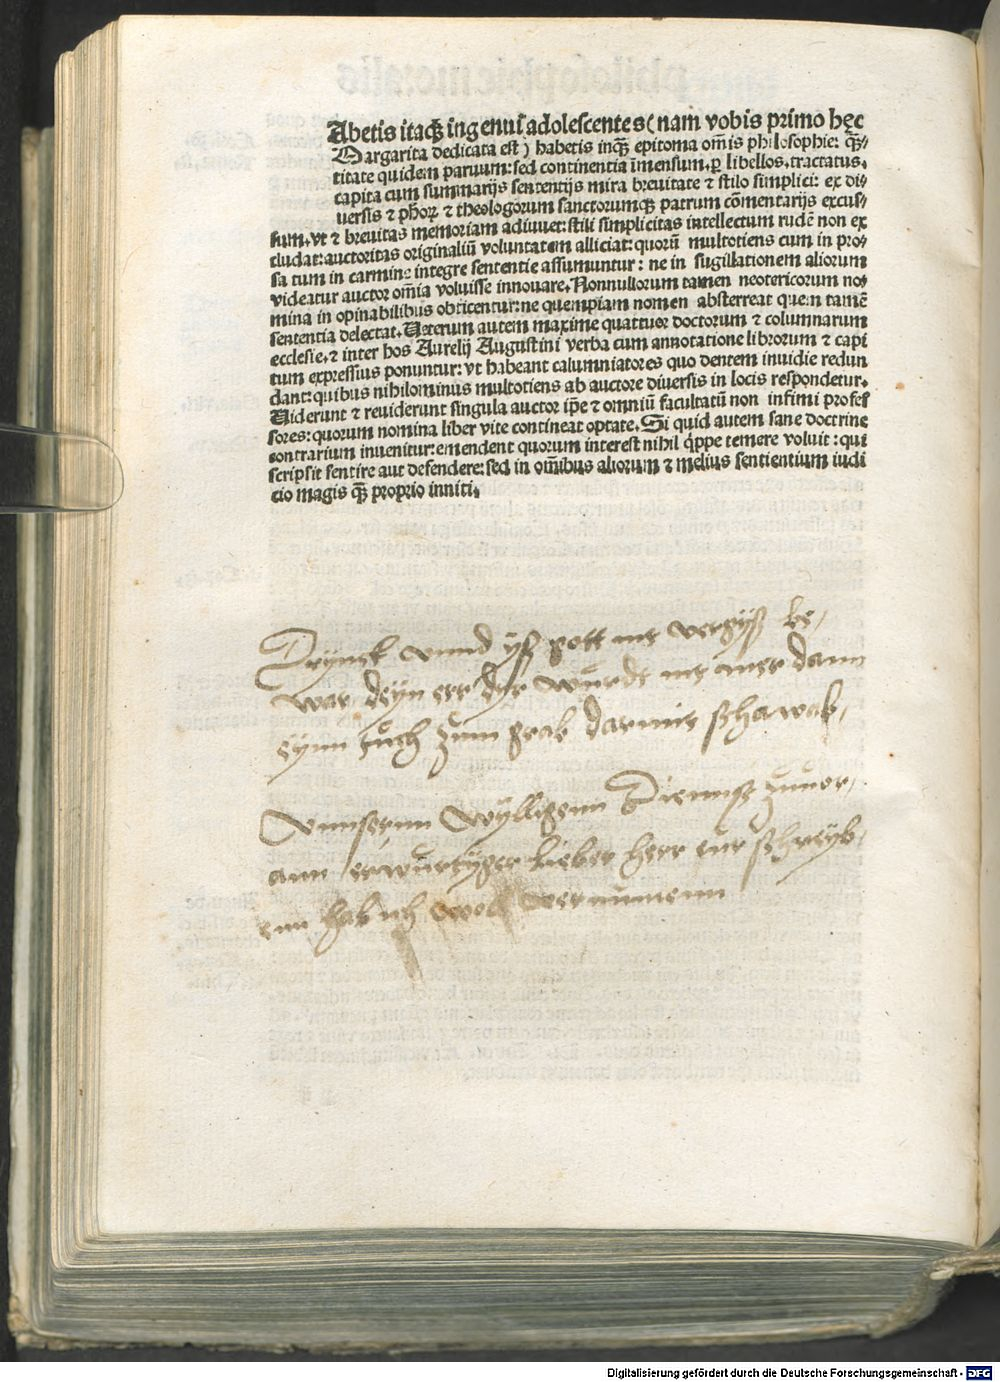 Abetis itaq̃ ingenui adolescentes (nam vobis primo hęc
Margarita dedicata est) habetis inq̃ epitoma om̃is philosophie: q̃⸗
titate quidem paruum: sed continentia im̃ensum. ꝑ libellos, tractatus,
capita cum summarijs sententijs mira breuitate ⁊ stilo simplici: ex di⸗
uersis ⁊ ph̃oꝝ ⁊ theologorum sanctorumq̃ patrum cõmentarijs excus⸗
sum. vt ⁊ breuitas memoriam adiuuet: stili simplicitas intellectum rudẽ non ex
cludat: auctoritas originaliũ voluntatem alliciat: quorũ multotiens cum in pro⸗
sa tum in carmine integre sententie assumuntur: ne in sugillationem aliorum
videatur auctor om̃ia voluisse innouare. Nonnullorum tamen neotericorum no⸗
mina in opinabilibus obticentur: ne quempiam nomen absterreat quem tamẽ
sententia delectat. Veterum autem maxime quattuor doctorum ⁊ columnarum
ecclesie. ⁊ inter hos Aurelij Augustini verba cum annotatione librorum ⁊ capi
tum expressius ponuntur: vt habeant calumniatores quo dentem inuidie redun
dant: quibus nihilominus multotiens ab auctore diuersis in locis respondetur.
Viderunt ⁊ reuiderunt singula auctor ip̃e ⁊ omniũ facultatũ non infimi profes
sores: quorum nomina liber vite contineat optate. Si quid autem sane doctrine
contrarium inuenitur: emendent quorum interest nihil q̃ppe temere voluit: qui
scripsit sentire aut defendere: sed in om̃ibus aliorum ⁊ melius sentientium iudi
cio magis q̃ proprio inniti.
Drÿnck vnnd ÿß gott nit vergÿß be⸗
war deÿn err dÿr würdt nit mer dann
eÿnn tuch zum grab darmit schawab.
Vnnsernn wÿlligenn Diennst zuuor,
ann erwürtÿger lieber herr eur schreÿb⸗
enn hab ich woll vernummenn
Digitalisierung gefördert durch die Deutsche Forschungsgemeinschaft - DFG